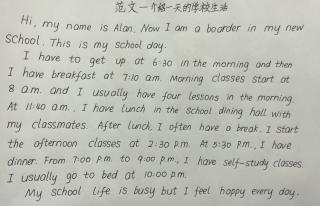 范文—介绍一天的学校生活
Hi, my name is Alan. Now I am a boarder in my new
School. This is my school day.
I have to get up at 6:30 in the morning and then
I have breakfast at 7:10 a.m. Morning classes start at
8 a.m. and I usually have four lessons in the morning.
At 11:40 a.m., I have lunch in the school dining hall with
my classmates. After lunch, I often have a break. I start
the afternoon classes at 2:30 p.m. At 5:30 p.m., I have
dinner. From 7:00 p.m. to 9:00 p.m., I have self-study classes.
I usually go to bed at 10:00 p.m.
My school life is busy but I feel happy every day.